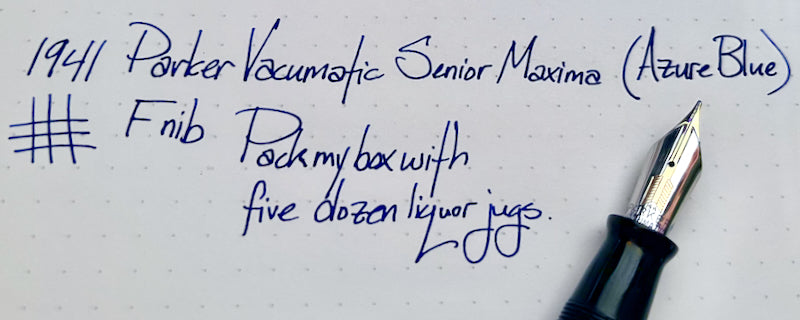 1941 Parker Vacumatic Senior Maxima (Azure Blue)
F nib
Pack my box with
five dozen liquor jugs.